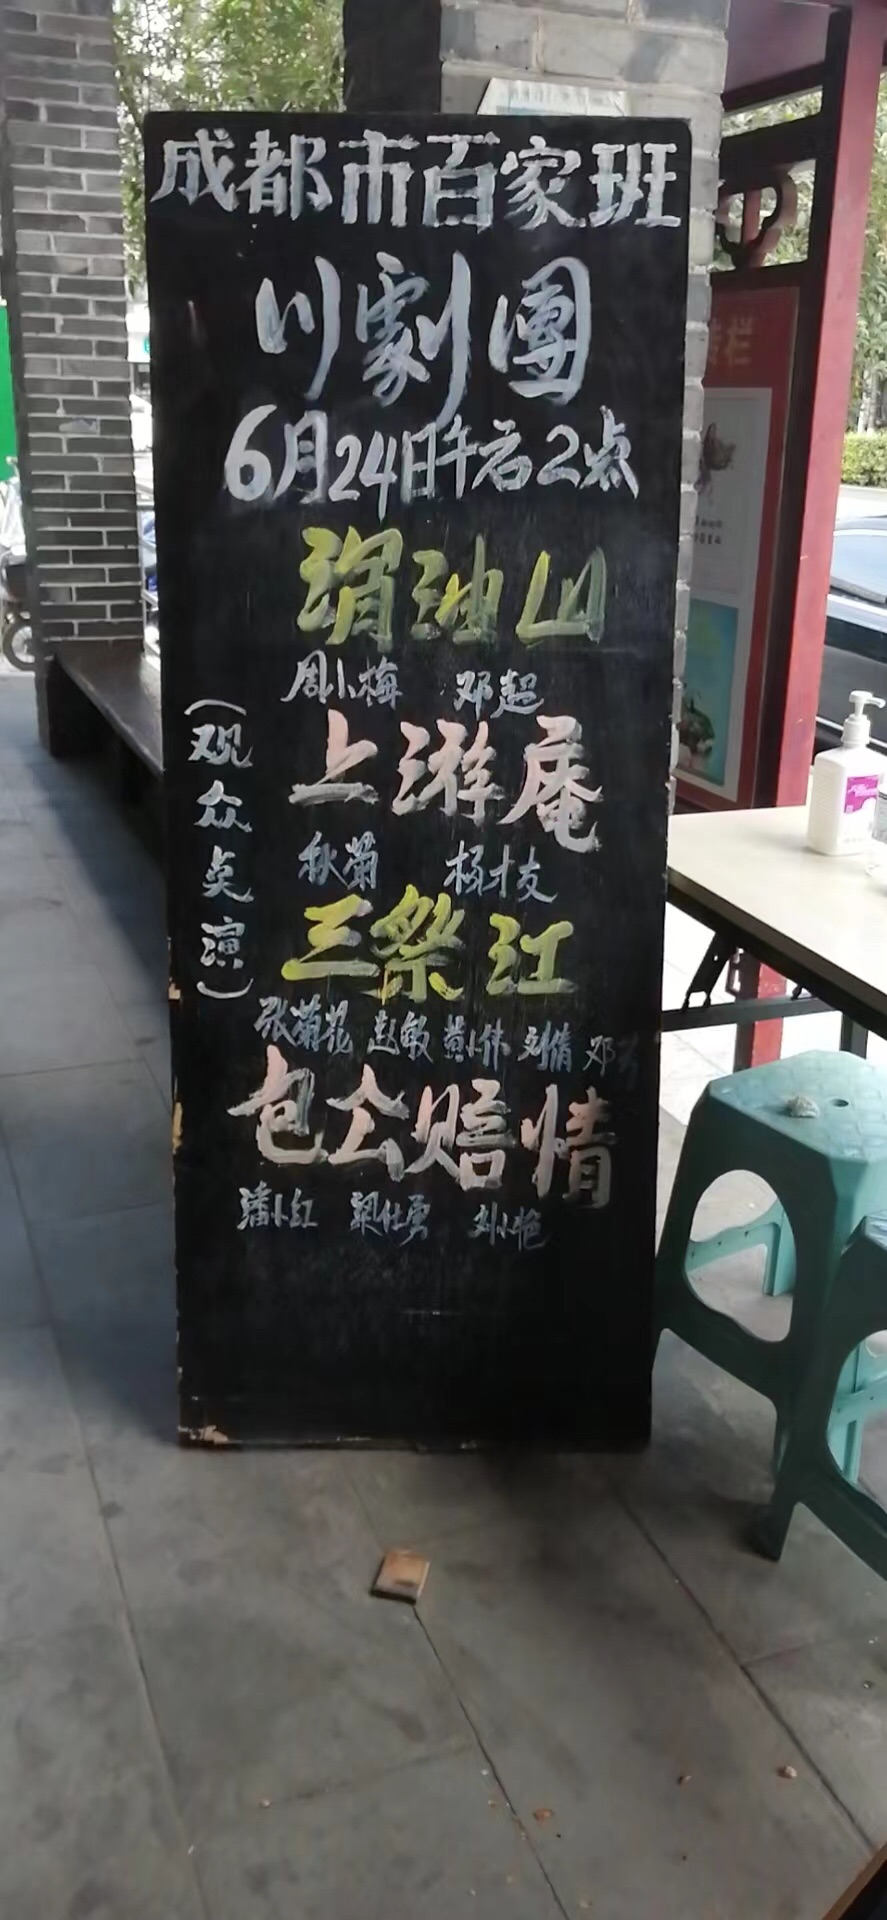 成都市百家班
川劇團
6月24日午后2点
滑油山
周小梅 邓超
上游庵
秋菊 杨才支
三祭江
张菊花 赵敏 黄小伟 刘倩 邓
包公赔情
潘小红 梁仕勇 刘小艳
(观众点演)
栏